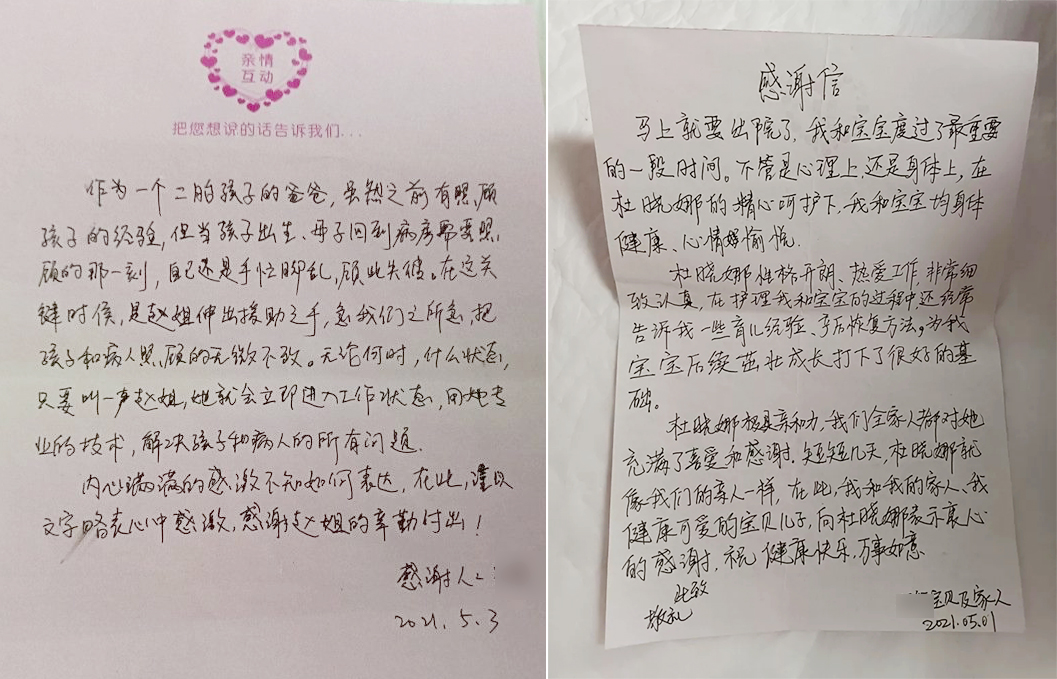 亲情
互动
把您想说的话告诉我们...
作为一个二胎孩子的爸爸，虽然之前有照顾
孩子的经验，但当孩子出生、母子回到病房需要照
顾的那一刻，自己还是手忙脚乱，顾此失彼。在这关
键时候，是赵姐伸出援助之手，急我们之所急，把
孩子和病人照顾的无微不致。无论何时，什么状态，
只要叫一声赵姐，她就会立即进入工作状态，用她专
业的技术，解决孩子和病人的所有问题.
内心满满的感激不知如何表达，在此，谨以
文字略表心中感激，感谢赵姐的辛勤付出！
感谢人：
2021.5.3
感谢信
马上就要出院了，我和宝宝度过了最重要
的一段时间。不管是心理上，还是身体上，在
杜晓娜的精心呵护下，我和宝宝均身体
健康、心情愉悦.
杜晓娜性格开朗、热爱工作，非常细
致认真，在护理我和宝宝的过程中，还经常
告诉我一些育儿经验、产后恢复方法，为我
宝宝后续茁壮成长打下了很好的基
础。
杜晓娜极具亲和力，我们全家人都对她
充满了喜爱和感谢.短短几天，杜晓娜就
像我们的亲人一样，在此，我和我的家人、我
健康可爱的宝贝儿子，向杜晓娜表示衷心
的感谢，祝健康快乐，万事如意
此致
敬礼
宝贝及家人
2021.05.01